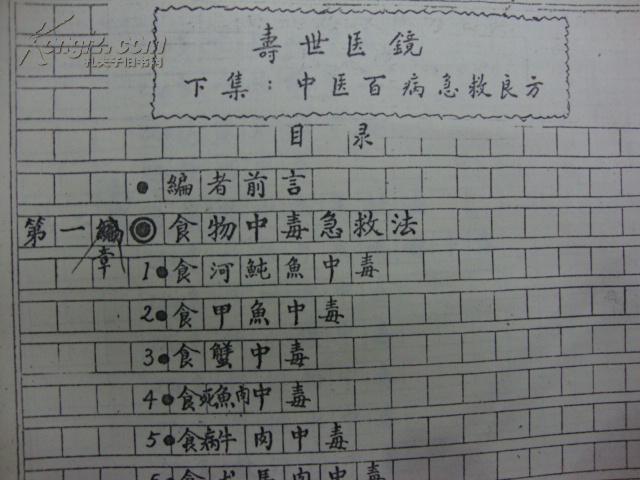 寿世医鏡
下集：中医百病急救良方
目录
●編者前言
第一章◎食物中毒急救法
1●食河魨魚中毒
2●食甲魚中毒
3●食蟹中毒
4●食死魚肉中毒
5●食病牛肉中毒
6●食犬馬肉中毒
孔夫子旧书网